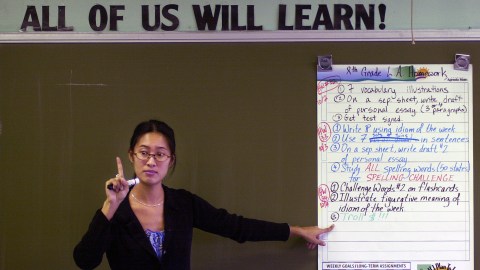 ALL OF US WILL LEARN!
8th Grade L.A. Homework
① 7 vocabulary illustrations
② On a sep. sheet, write draft
of personal essay (3 paragraphs)
③ Get test signed.
① Write 1P using idiom of the week
② Use 7 in sentences
③ On a sep. sheet, write draft #2
of personal essay.
④ Study ALL spelling words (50 states)
for SPELLING CHALLENGE
① Challenge Words #2 on flashcards
② Illustrate figurative meaning of
idiom of the week
③
WEEKLY GOALS/LONG-TERM ASSIGNMENTS